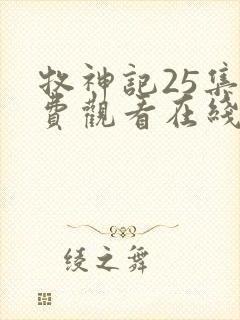 牧神記25集
費觀看在綫
綾之舞